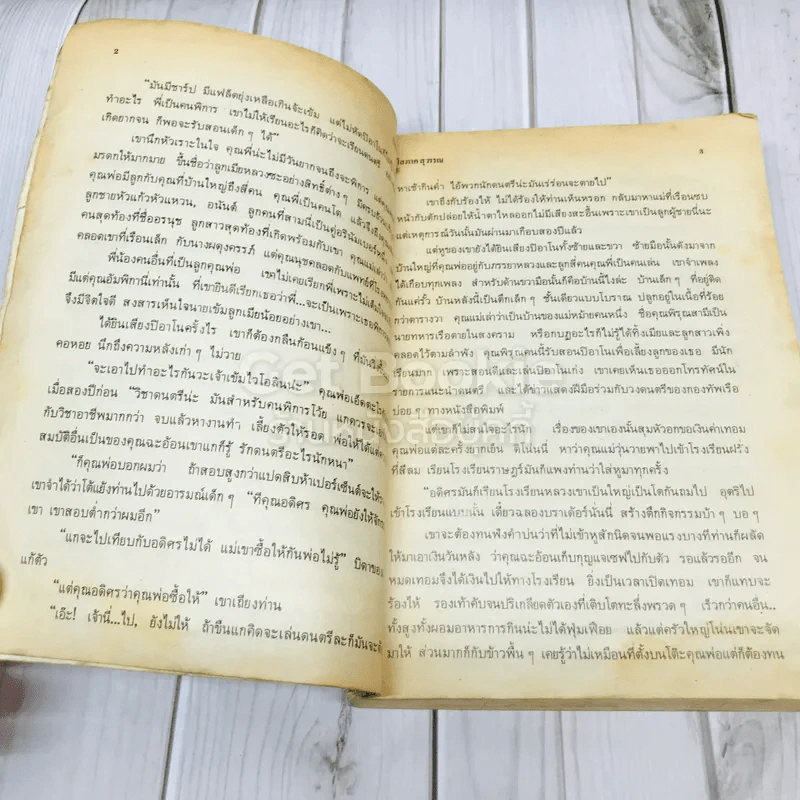 2
"มันมีชาร์ป มีแฟล็ตยุ่งเหลือเกินจ้ะเข้ม แต่ไม่หัดปิอาโน
ทำอะไร พี่เป็นคนพิการ เขาไม่ให้เรียนอะไรก็คิดว่าจะเรียนดนตรี
เกิดยากจน ก็พอจะรับสอนเด็กๆ ได้"
เขานึกหัวเราะในใจ คุณพี่น่ะไม่มีวันยากจนถึงจะพิการ แต่
มรดกให้มากมาย ขึ้นชื่อว่าลูกเมียหลวงซะอย่างสิทธิ์ต่างๆ มีครบตัว
คุณพ่อมีลูกกับคุณที่บ้านใหญ่ถึงสี่คน คุณพี่เป็นคนโต แล้วจึงถึง
ลูกชายหัวแก้วหัวแหวน, อนันต์ ลูกคนที่สามนี่เป็นคู่อริ
คนสุดท้องที่ชื่ออรนุช ลูกสาวสุดท้องที่เกิดพร้อมกับเขา
คลอดเขาที่เรือนเล็ก กับนางผดุงครรภ์ แต่คุณนุชคลอดกับแพทย์ที่
พี่น้องคนอื่นที่เป็นลูกคุณพ่อ เขาไม่เคยเรียกพี่เพราะไม่เต็มใจ
มีแต่คุณอัมพิกานี่เท่านั้น ที่เขายินดีเรียกเธอว่าพี่...จะเป็นเพราะเธอพิการ
จึงมีจิตใจดี สงสารเห็นใจนายเข้มลูกเมียน้อยอย่างเขา...
ได้ยินเสียงปิอาโนครั้งไร เขาก็ต้องกลืนก้อนแข็งๆ ที่มัน
คอหอย นึกถึงความหลังเก่าๆ ไม่วาย
"จะเอาไปทำอะไรกันวะเจ้าเข้มไวโอลินน่ะ" คุณพ่อเอ็ด
เมื่อสองปีก่อน "วิชาดนตรีน่ะ มันสำหรับคนพิการโว้ย แกควรจะ
กับวิชาอาชีพมากกว่า จบแล้วหางานทำ เลี้ยงตัวให้รอด พ่อให้ได้แต่
สมบัติอื่นเป็นของคุณฉะอ้อนเขาแกก็รู้ รักดนตรีอะไรนักหนา"
"ก็คุณพ่อบอกผมว่า ถ้าสอบสูงกว่าแปดสิบห้าเปอร์เซ็นต์จะให้
เขาจำได้ว่าโต้แย้งท่านไปด้วยอารมณ์เด็กๆ "ทีคุณอดิศร คุณพ่อยังให้
เขา เขาสอบต่ำกว่าผมอีก"
"แกจะไปเทียบกับอดิศรไม่ได้ แม่เขาซื้อให้กันพ่อไม่รู้" บิดาของ
แก้ตัว
"แต่คุณอดิศรว่าคุณพ่อซื้อให้" เขาเถียงท่าน
"เอ๊ะ! เจ้านี่...ไป, ยังไม่ให้ ถ้าขืนแกคิดจะเล่นดนตรีละก็มันจะ
โสภาค สุวรรณ
3
หาเช้ากินค่ำ ไอ้พวกนักดนตรีน่ะมันเร่ร่อนจะตายไป"
เขาถึงกับร้องไห้ ไม่ได้ร้องให้ท่านเห็นหรอก กลับมาหาแม่ที่เรือนซบ
หน้ากับตักปล่อยให้น้ำตาไหลออกไม่มีเสียงสะอื้นเพราะเขาเป็นลูกผู้ชายนี่นะ
แต่เหตุการณ์วันนั้นมันผ่านมาเกือบสองปีแล้ว
แต่หูของเขายังได้ยินเสียงปิอาโนทั้งซ้ายและขวา ซ้ายมือนั้นดังมาจาก
บ้านใหญ่ที่คุณพ่ออยู่กับภรรยาหลวงและลูกสี่คนคุณพี่เป็นคนเล่น เขาจำเพลง
ได้เกือบทุกเพลง สำหรับด้านขวามือนั้นก็คือบ้านนี้ไงล่ะ บ้านเล็กๆ ที่อยู่ติด
กันแค่รั้ว บ้านหลังนี้เป็นตึกเล็กๆ ชั้นเดียวแบบโบราณ ปลูกอยู่ในเนื้อที่ร้อย
กว่าตารางวา คุณแม่เล่าว่าเป็นบ้านของแม่หม้ายคนหนึ่ง ชื่อคุณพิรุณสามีเป็น
นายทหารเรือตายในสงคราม หรือกบฏอะไรก็ไม่รู้ได้ทิ้งเมียและลูกสาวเพิ่ง
คลอดไว้ตามลำพัง คุณพิรุณคนนี้รับสอนปิอาโนเพื่อเลี้ยงลูกของเธอ มีนัก
เรียนมาก เพราะสอนดีและเล่นปิอาโนเก่ง เขาเคยเห็นเธอออกโทรทัศน์ใน
รายการแนะนำดนตรี และได้ข่าวแสดงฝีมือร่วมกับวงดนตรีของกองทัพเรือ
บ่อยๆ ทางหนังสือพิมพ์
แต่เขาก็ไม่สนใจอะไรนัก เรื่องของเขาเองนั้นสุมหัวอกขอเงินค่าเทอม
คุณพ่อแต่ละครั้งยากเย็น ติโน่นนี่ หาว่าคุณแม่วุ่นวายพาไปเข้าโรงเรียนฝรั่ง
ที่สีลม เรียนโรงเรียนราษฎร์มันก็แพงท่านว่าใส่หูมาทุกครั้ง
"อดิศรมันก็เรียนโรงเรียนหลวงเขาเป็นใหญ่เป็นโตกันถมไป อุตริไป
เข้าโรงเรียนแบบนั้น เดี๋ยวฉลองบราเดอร์นั่นนี่ สร้างตึกกิจกรรมบ้า ๆ บอ ๆ"
เขาจะต้องทนฟังคำบ่นว่าที่ไม่เข้าหูสักนิดจนพอแรงบางทีท่านก็ผลัด
ให้มาเอาเงินวันหลัง ว่าคุณฉะอ้อนเก็บกุญแจเซฟไปกับตัว รอแล้วรออีก จน
หมดเทอมจึงได้เงินไปให้ทางโรงเรียน ยิ่งเป็นเวลาเปิดเทอม เขาก็แทบจะ
ร้องไห้ รองเท้าคับจนปริเกลียดตัวเองที่เติบโตทะลึ่งพรวดๆ เร็วกว่าคนอื่น..
ทั้งสูงทั้งผอมอาหารการกินน่ะไม่ได้ฟุ่มเฟือย แล้วแต่ครัวใหญ่โน่นเขาจะจัด
มาให้ ส่วนมากก็กับข้าวพื้นๆ เคยรู้ว่าไม่เหมือนที่ตั้งบนโต๊ะคุณพ่อแต่ก็ต้องทน